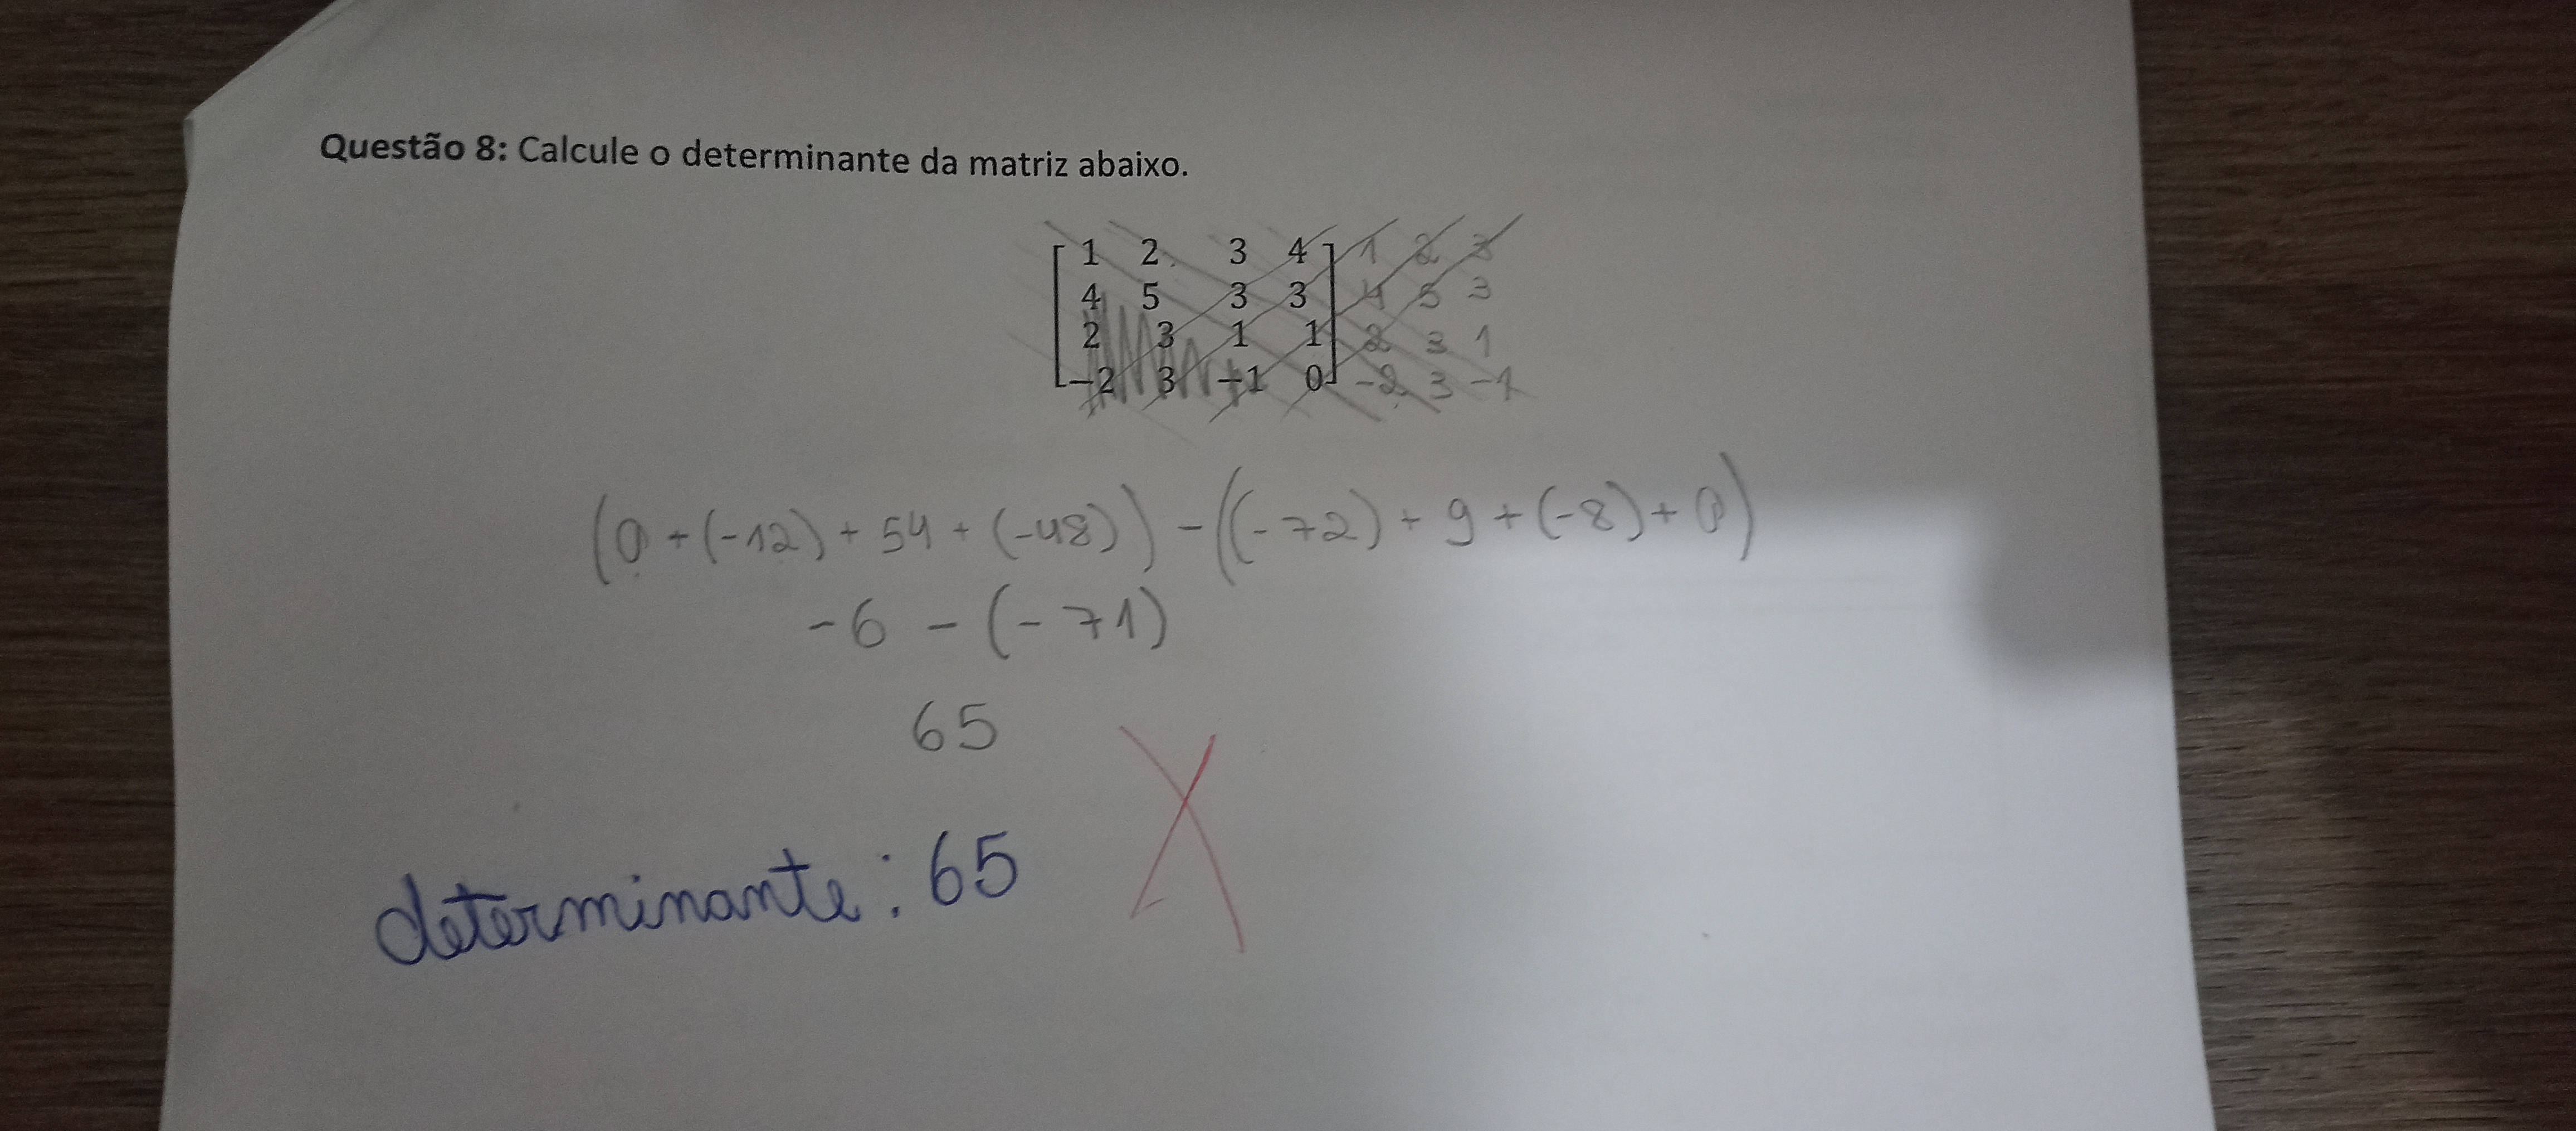 Questão 8: Calcule o determinante da matriz abaixo.
1 2 3 4 1 2 3
4 5 3 3 4 5 3
2 3 1 1 2 3 1
-2 3 -1 0 -2 3 -1
(0 + (-12) + 54 + (-48)) - ((-72) + 9 + (-8) + 0)
-6 - (-71)
65
determinante: 65